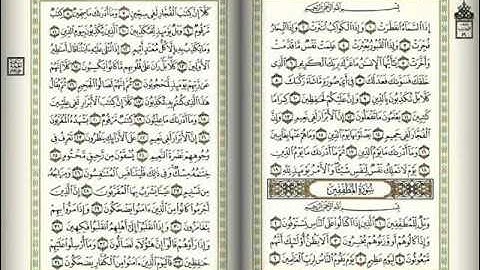 بِسْمِ اللَّهِ الرَّحْمَٰنِ الرَّحِيمِ
إِذَا السَّمَاءُ انفَطَرَتْ ١ وَإِذَا الْكَوَاكِبُ انتَثَرَتْ ٢ وَإِذَا الْبِحَارُ
فُجِّرَتْ ٣ وَإِذَا الْقُبُورُ بُعْثِرَتْ ٤ عَلِمَتْ نَفْسٌ مَّا قَدَّمَتْ
وَأَخَّرَتْ ٥ يَٰأَيُّهَا الْإِنسَٰنُ مَا غَرَّكَ بِرَبِّكَ الْكَرِيمِ ٦ الَّذِي
خَلَقَكَ فَسَوَّىٰكَ فَعَدَلَكَ ٧ فِي أَيِّ صُورَةٍ مَّا شَاءَ رَكَّبَكَ ٨
كَلَّا بَلْ تُكَذِّبُونَ بِالدِّينِ ٩ وَإِنَّ عَلَيْكُمْ لَحَٰفِظِينَ ١٠ كِرَامًا
كَٰتِبِينَ ١١ يَعْلَمُونَ مَا تَفْعَلُونَ ١٢ إِنَّ الْأَبْرَارَ لَفِي نَعِيمٍ ١٣ وَإِنَّ
الْفُجَّارَ لَفِي جَحِيمٍ ١٤ يَصْلَوْنَهَا يَوْمَ الدِّينِ ١٥ وَمَا هُمْ عَنْهَا بِغَائِبِينَ
١٦ وَمَا أَدْرَىٰكَ مَا يَوْمُ الدِّينِ ١٧ ثُمَّ مَا أَدْرَىٰكَ مَا يَوْمُ الدِّينِ
١٨ يَوْمَ لَا تَمْلِكُ نَفْسٌ لِّنَفْسٍ شَيْئًا وَالْأَمْرُ يَوْمَئِذٍ لِّلَّهِ ١٩
سُورَةُ الْمُطَفِّفِينَ
بِسْمِ اللَّهِ الرَّحْمَٰنِ الرَّحِيمِ
وَيْلٌ لِّلْمُطَفِّفِينَ ١ الَّذِينَ إِذَا اكْتَالُوا عَلَى النَّاسِ يَسْتَوْفُونَ ٢
وَإِذَا كَالُوهُمْ أَو وَّزَنُوهُمْ يُخْسِرُونَ ٣ أَلَا يَظُنُّ أُولَٰئِكَ أَنَّهُم
مَّبْعُوثُونَ ٤ لِيَوْمٍ عَظِيمٍ ٥ يَوْمَ يَقُومُ النَّاسُ لِرَبِّ الْعَٰلَمِينَ ٦
كَلَّا إِنَّ كِتَٰبَ الْفُجَّارِ لَفِي سِجِّينٍ ٧ وَمَا أَدْرَىٰكَ مَا سِجِّينٌ ٨ كِتَٰبٌ
مَّرْقُومٌ ٩ وَيْلٌ يَوْمَئِذٍ لِّلْمُكَذِّبِينَ ١٠ الَّذِينَ يُكَذِّبُونَ بِيَوْمِ الدِّينِ ١١
وَمَا يُكَذِّبُ بِهِ إِلَّا كُلُّ مُعْتَدٍ أَثِيمٍ ١٢ إِذَا تُتْلَىٰ عَلَيْهِ ءَايَٰتُنَا قَالَ أَسَٰطِيرُ
الْأَوَّلِينَ ١٣ كَلَّا بَلْ رَانَ عَلَىٰ قُلُوبِهِم مَّا كَانُوا يَكْسِبُونَ ١٤ كَلَّا إِنَّهُمْ
عَن رَّبِّهِمْ يَوْمَئِذٍ لَّمَحْجُوبُونَ ١٥ ثُمَّ إِنَّهُمْ لَصَالُوا الْجَحِيمِ ١٦ ثُمَّ يُقَالُ
هَٰذَا الَّذِي كُنتُم بِهِ تُكَذِّبُونَ ١٧ كَلَّا إِنَّ كِتَٰبَ الْأَبْرَارِ لَفِي عِلِّيِّينَ
١٨ وَمَا أَدْرَىٰكَ مَا عِلِّيُّونَ ١٩ كِتَٰبٌ مَّرْقُومٌ ٢٠ يَشْهَدُهُ الْمُقَرَّبُونَ
٢١ إِنَّ الْأَبْرَارَ لَفِي نَعِيمٍ ٢٢ عَلَى الْأَرَائِكِ يَنظُرُونَ ٢٣ تَعْرِفُ فِي
وُجُوهِهِمْ نَضْرَةَ النَّعِيمِ ٢٤ يُسْقَوْنَ مِن رَّحِيقٍ مَّخْتُومٍ ٢٥
خِتَٰمُهُ مِسْكٌ وَفِي ذَٰلِكَ فَلْيَتَنَافَسِ الْمُتَنَٰفِسُونَ ٢٦ وَمِزَاجُهُ
مِن تَسْنِيمٍ ٢٧ عَيْنًا يَشْرَبُ بِهَا الْمُقَرَّبُونَ ٢٨ إِنَّ الَّذِينَ
أَجْرَمُوا كَانُوا مِنَ الَّذِينَ ءَامَنُوا يَضْحَكُونَ ٢٩ وَإِذَا مَرُّوا بِهِمْ
يَتَغَامَزُونَ ٣٠ وَإِذَا انقَلَبُوا إِلَىٰ أَهْلِهِمُ انقَلَبُوا فَكِهِينَ
٣١ وَإِذَا رَأَوْهُمْ قَالُوا إِنَّ هَٰؤُلَاءِ لَضَالُّونَ ٣٢ وَمَا أُرْسِلُوا عَلَيْهِمْ
حَٰفِظِينَ ٣٣ فَالْيَوْمَ الَّذِينَ ءَامَنُوا مِنَ الْكُفَّارِ يَضْحَكُونَ ٣٤